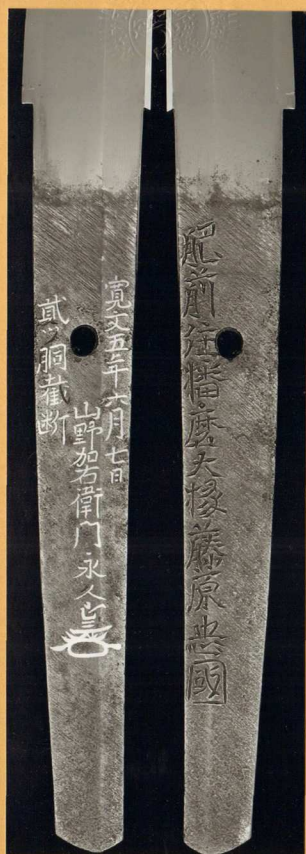 肥前住播磨大掾藤原忠國
寛文五年六月七日
山野加右衛門永久
貳ツ胴截断